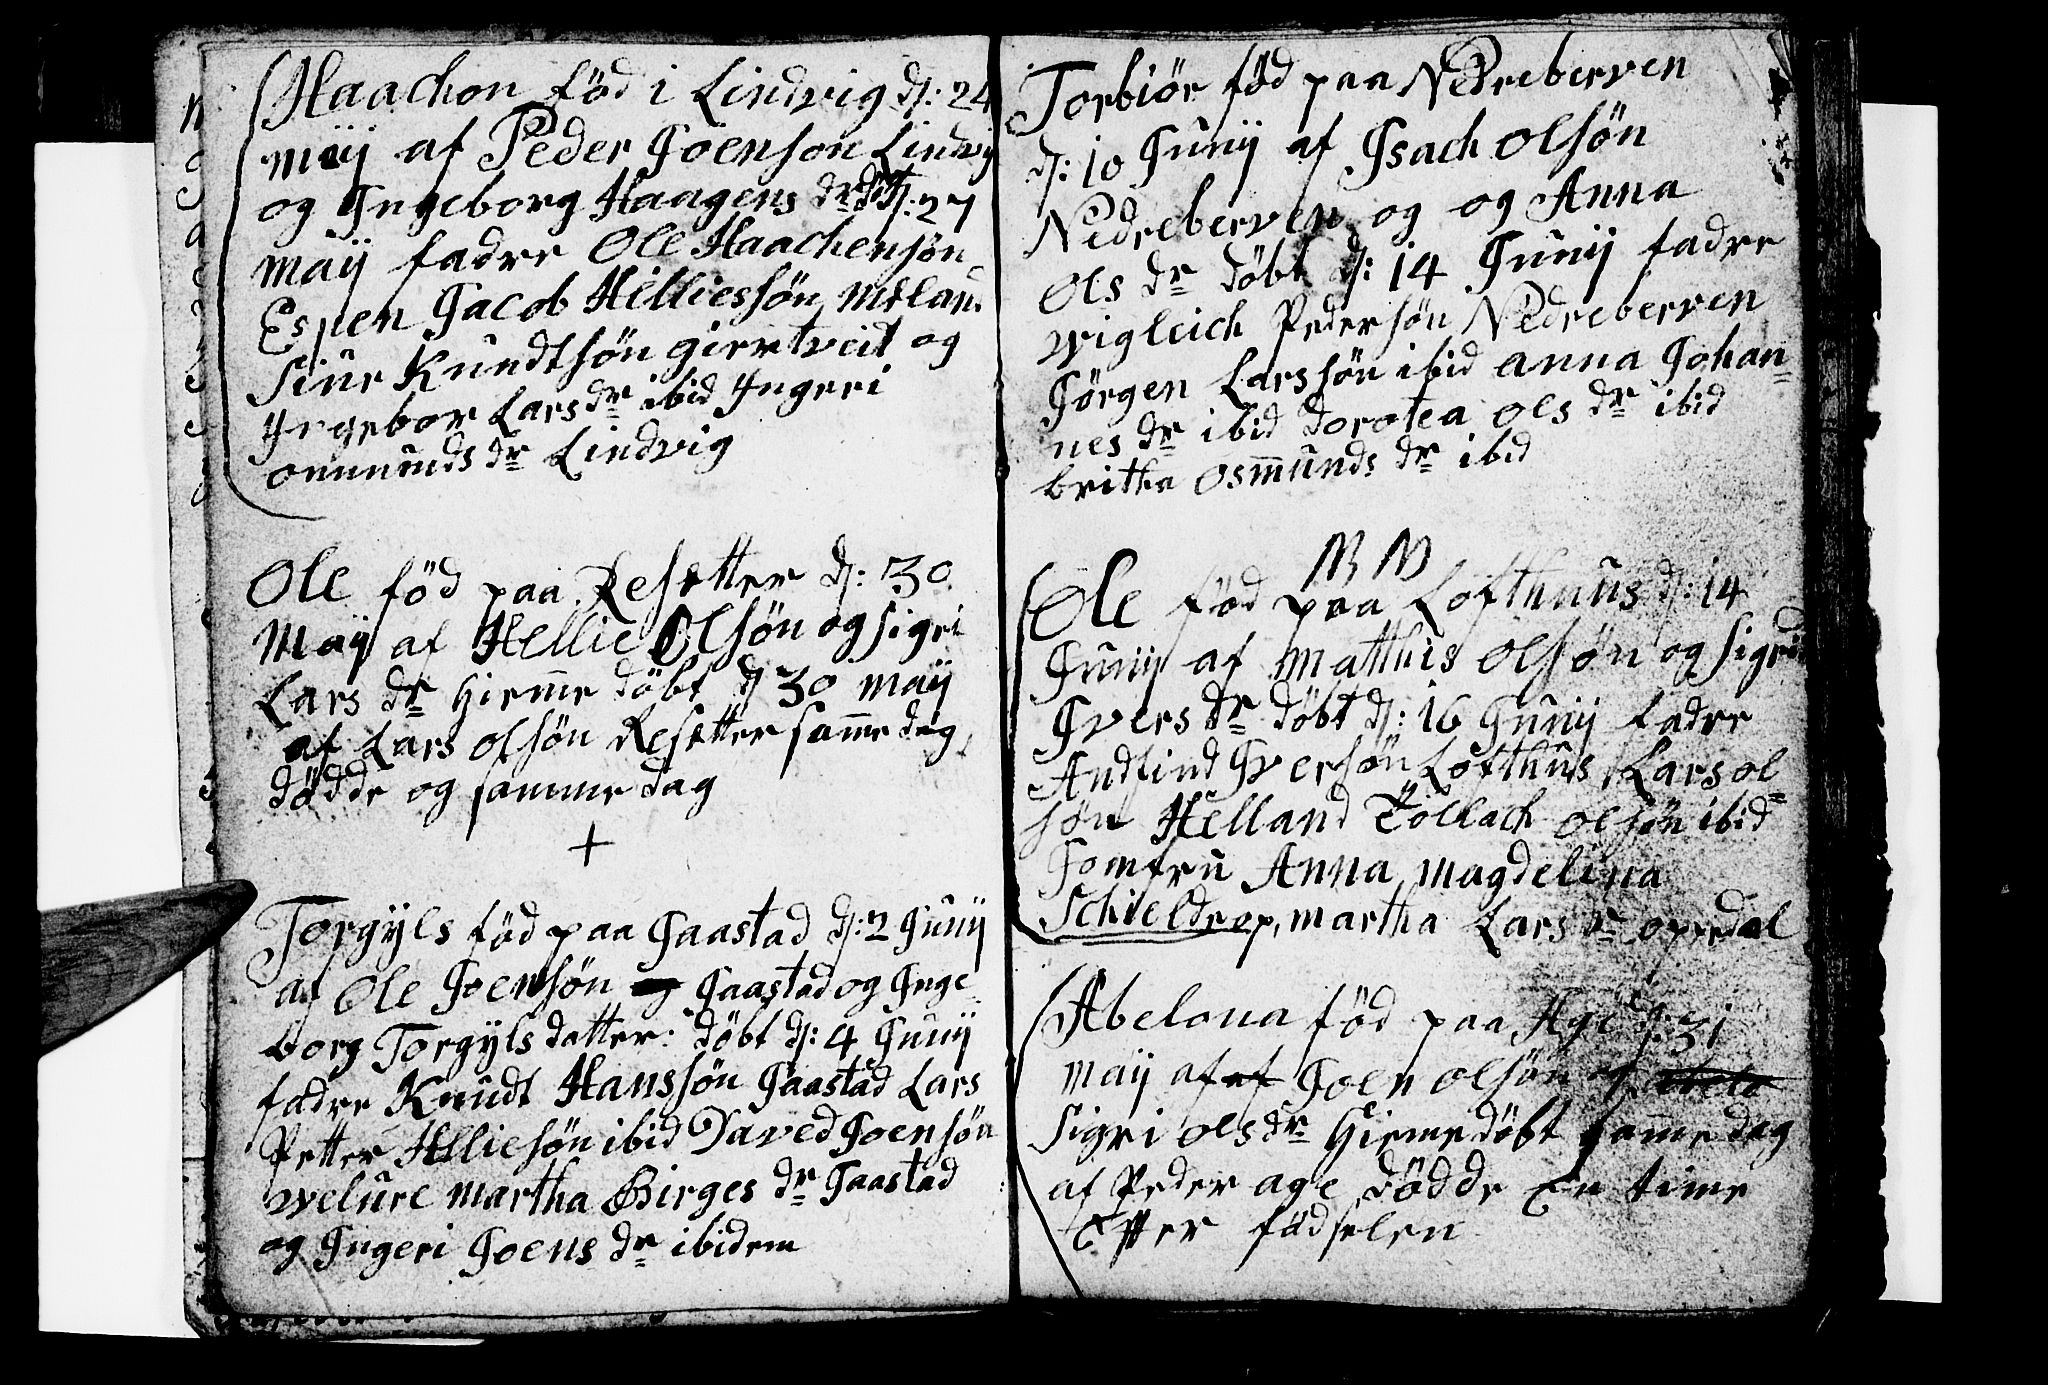 Haachon föd i Lindvig d: 24
maij af Peder Joenson Lindvig
og Ingeborg Haagens dr döbt d: 27
maij fadre Ole Haachensön
Espen Jacob Hilliessön
Siur Knudtsön giertveit og
Ingebor Lars dr ibid Ingeri
ommunds dr Lindvig
Ole föd paa Resetter d: 30
Maij af Hellie Olsön og sigri
Lars dr hieme döbt d 30 maij
af Lars olsön Resetter samme dag
dödde og samme dag
+
Torgÿls föd paa Jaastad d: 2 Junij
af Ole Joensön og Jaastad og Inge
borg Torgÿls datter: döbt d: 4 Junij
fadre Knudt Hanssön Jaastad Lars
Petter Helliesön ibid Daved Joensön
welure martha Birges dr Jaastad
og Ingeri Joens dr ibidem
Torbiör föd paa Nedreberven
d: 10 Junij af Isach olsön
Nedreberven og og Anna
ols dr döbt d: 14 Junij fadre
wigleich Pedersön Nedreberven
Jörgen Larssön ibid anna Johan=
nes dr ibid dorotea ols dr ibid
britha osmunds dr ibid
NB NB
Ole föd paa Lofthuus d: 14
Junij af matthis olsön og sigri
Ivers dr döbt d: 16 Junij fadre
Andfind Iversön Lofthus Lars ol=
sön Helland Tollach olsön ibid
Jomfru Anna magdelina
Schieldrop, martha Lars dr opedal
Abelona föd paa Age d: 31
maij af af Joen olsön og
sigri ols dr hieme döbt samme dag
af Peder age dödde En time
Efter födselen